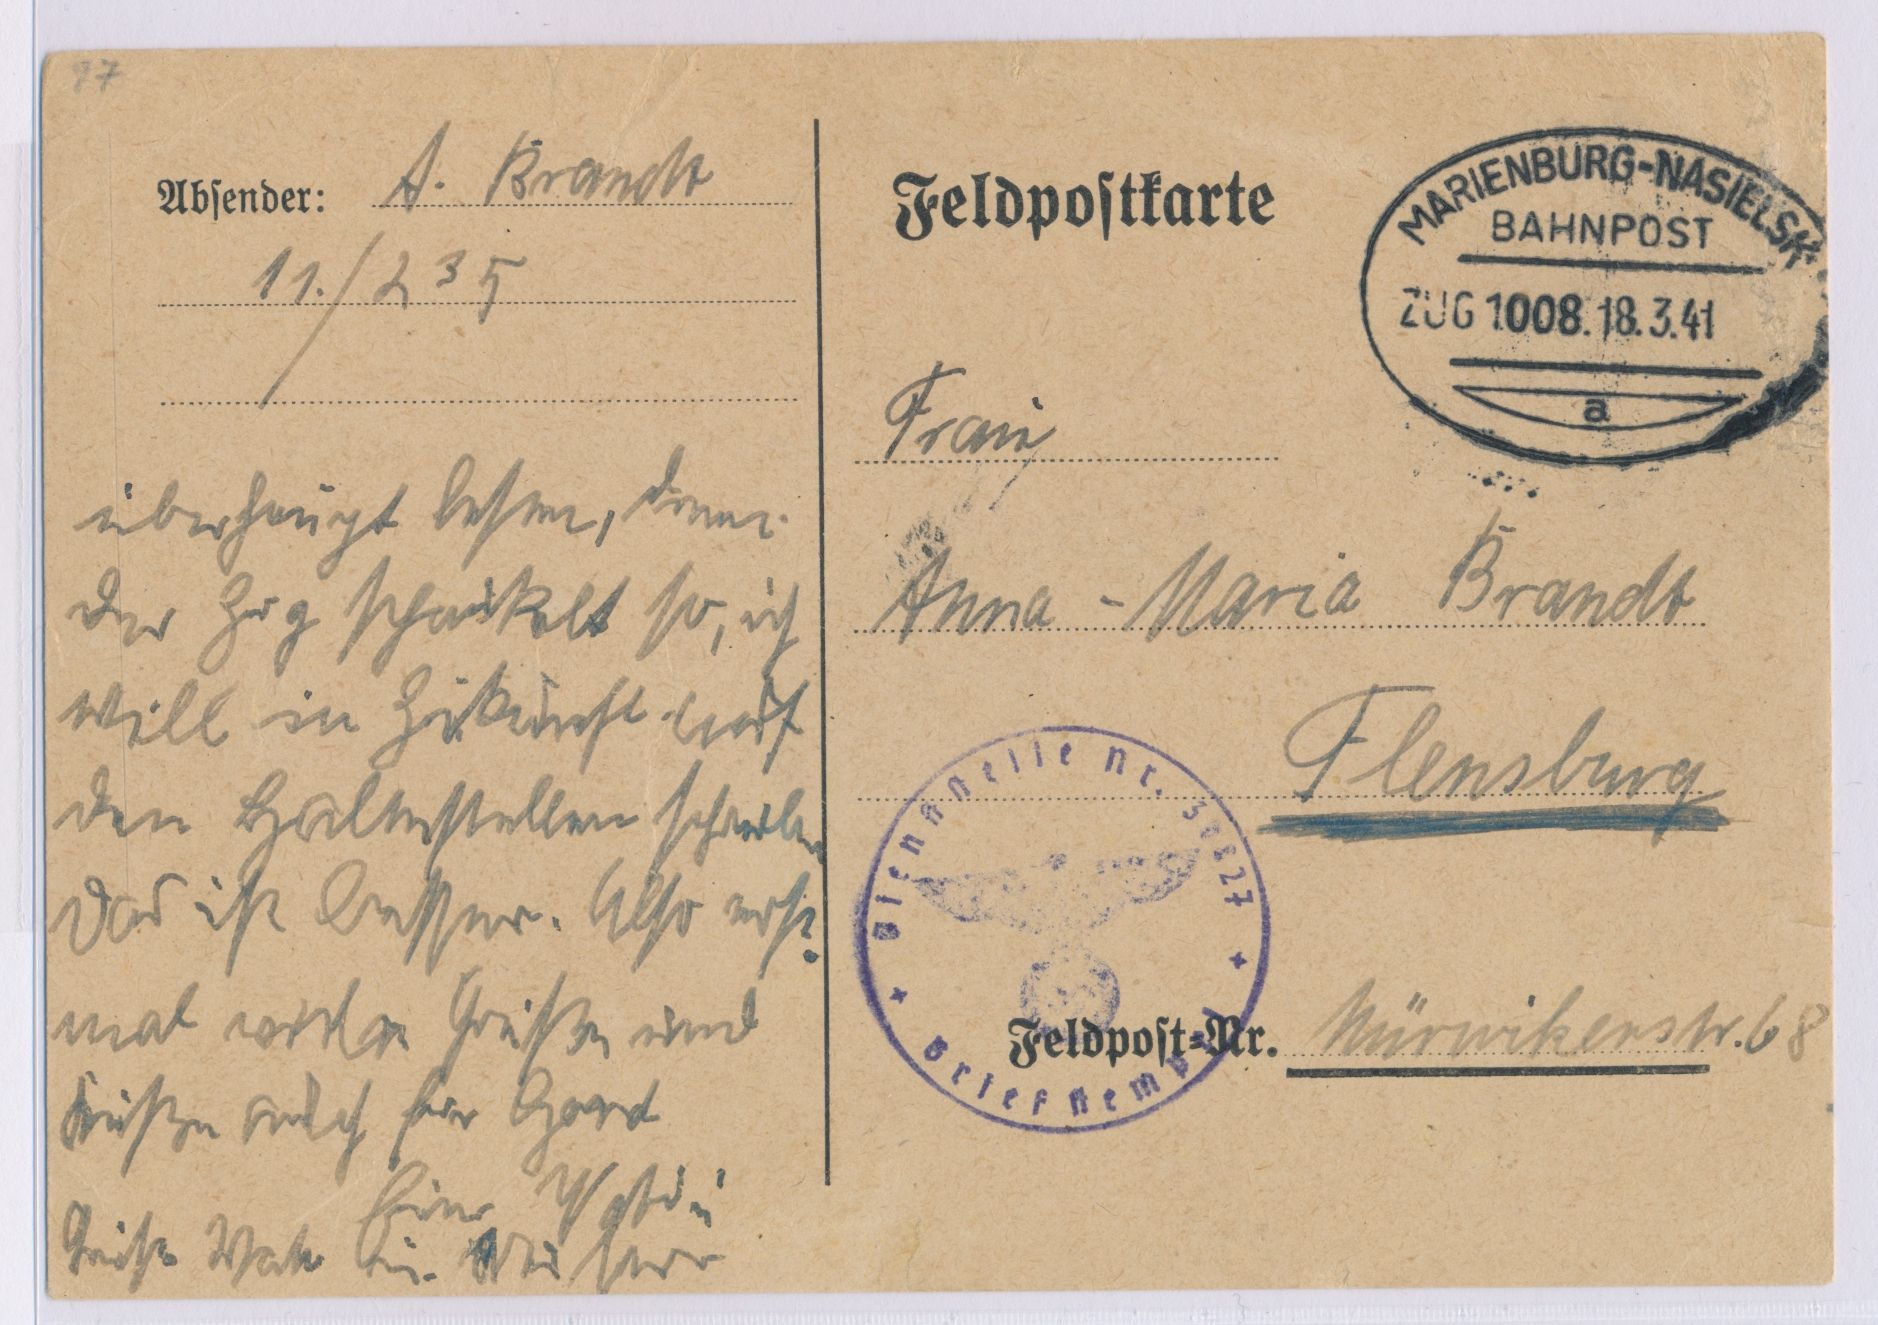 97
Absender: A. Brandt
11./235
überhaupt lesen, denn
der Zug schaukelt so, ich
will in Zukunft auf
den Haltestellen schreiben
Das ist besser. Also erst
mal viele Grüße und
Küße auch für
Feldpostkarte
MARIENBURG-NASIELSK
BAHNPOST
ZUG 1008.18.3.41
a
Frau
Anna-Maria Brandt
Flensburg
Dienststelle Nr.
Briefstempel
Feldpost-Nr. Mürwikerstr. 68